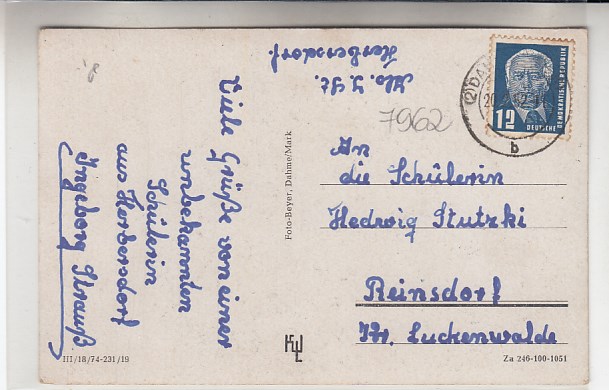 Viele Grüße von einer
unbekannten
Schülerin
aus Herbersdorf
Ingeborg Strauß
Herbersdorf.
7962
An
die Schülerin
Hedwig Stutzki
Reinsdorf
Kr. Luckenwalde
Foto-Beyer, Dahme/Mark
HI/18/74-231/19
Za 246-100-1051
12
DEUTSCHE
DEMOKRATISCHE REPUBLIK
b